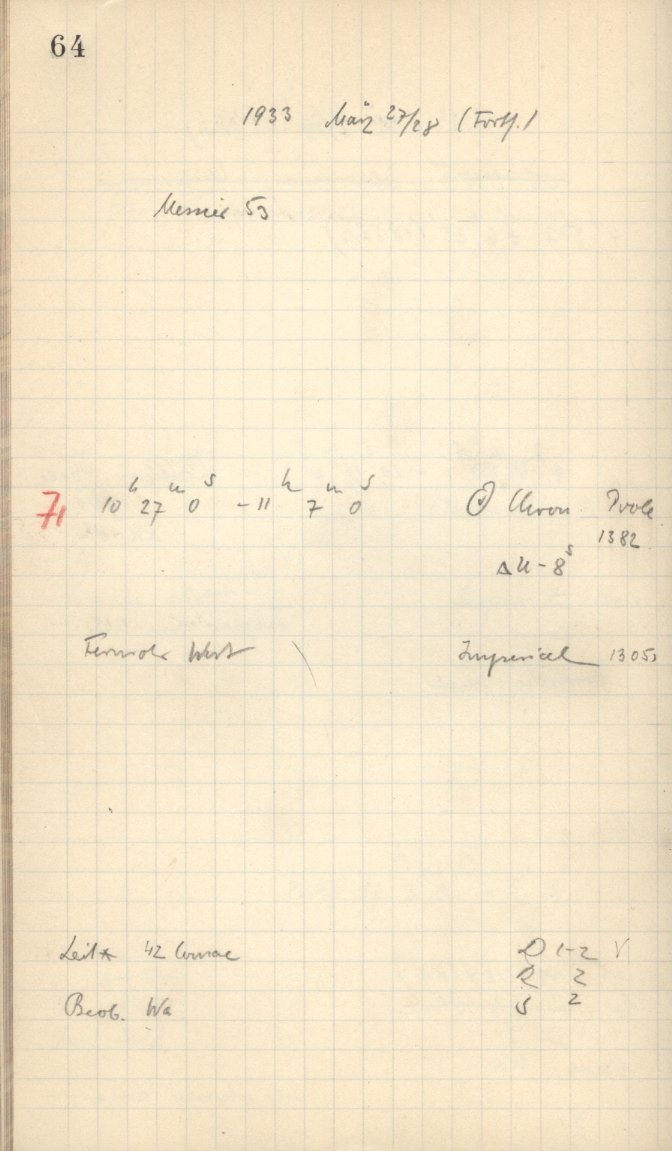 64
1933 März 27/28 (Forts.)
Messier 53
7, 10h 27m 0s - 11h 7m 0s ⊙ Chron. Poole
1382
Δu - 8s
Fernrohr West Imperial 1305
Leit* 42 Comae D 1-2 V
R 2
Beob. Wa S 2